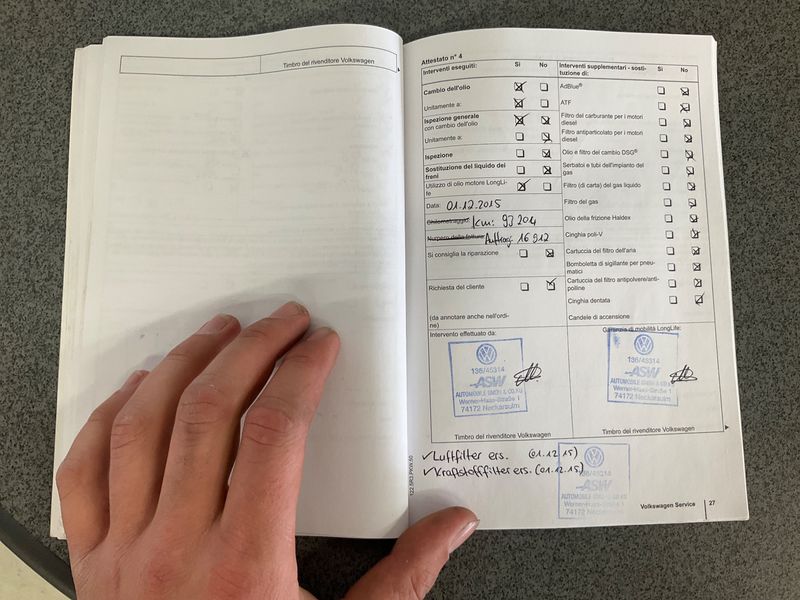 Timbro del rivenditore Volkswagen
Attestato n° 4
Interventi eseguiti: Sì No
Cambio dell'olio
Unitamente a:
Ispezione generale
con cambio dell'olio
Unitamente a:
Ispezione
Sostituzione del liquido dei
freni
Utilizzo di olio motore LongLi-
fe
Data: 01.12.2015
Chilometraggio: Km: 93204
Numero della fattura: Auftrag: 16912
Si consiglia la riparazione
Richiesta del cliente
(da annotare anche nell'ordi-
ne)
Intervento effettuato da:
136/45314
ASW
AUTOMOBILE GMBH & CO.KG
Werner-Haas-Straße 1
74172 Neckarsulm
Timbro del rivenditore Volkswagen
Interventi supplementari - sosti-
tuzione di: Sì No
AdBlue®
ATF
Filtro del carburante per i motori
diesel
Filtro antiparticolato per i motori
diesel
Olio e filtro del cambio DSG®
Serbatoi e tubi dell'impianto del
gas
Filtro (di carta) del gas liquido
Filtro del gas
Olio della frizione Haldex
Cinghia poli-V
Cartuccia del filtro dell'aria
Bomboletta di sigillante per pneu-
matici
Cartuccia del filtro antipolvere/anti-
polline
Cinghia dentata
Candele di accensione
Garanzia di mobilità LongLife:
136/45314
ASW
AUTOMOBILE GMBH & CO.KG
Werner-Haas-Straße 1
74172 Neckarsulm
Timbro del rivenditore Volkswagen
✓Luftfilter ers. (01.12.15)
✓Kraftstofffilter ers. (01.12.15)
136/45314
ASW
AUTOMOBILE GMBH & CO.KG
Werner-Haas-Straße 1
74172 Neckarsulm
122.5R3.PKW.50
Volkswagen Service 27